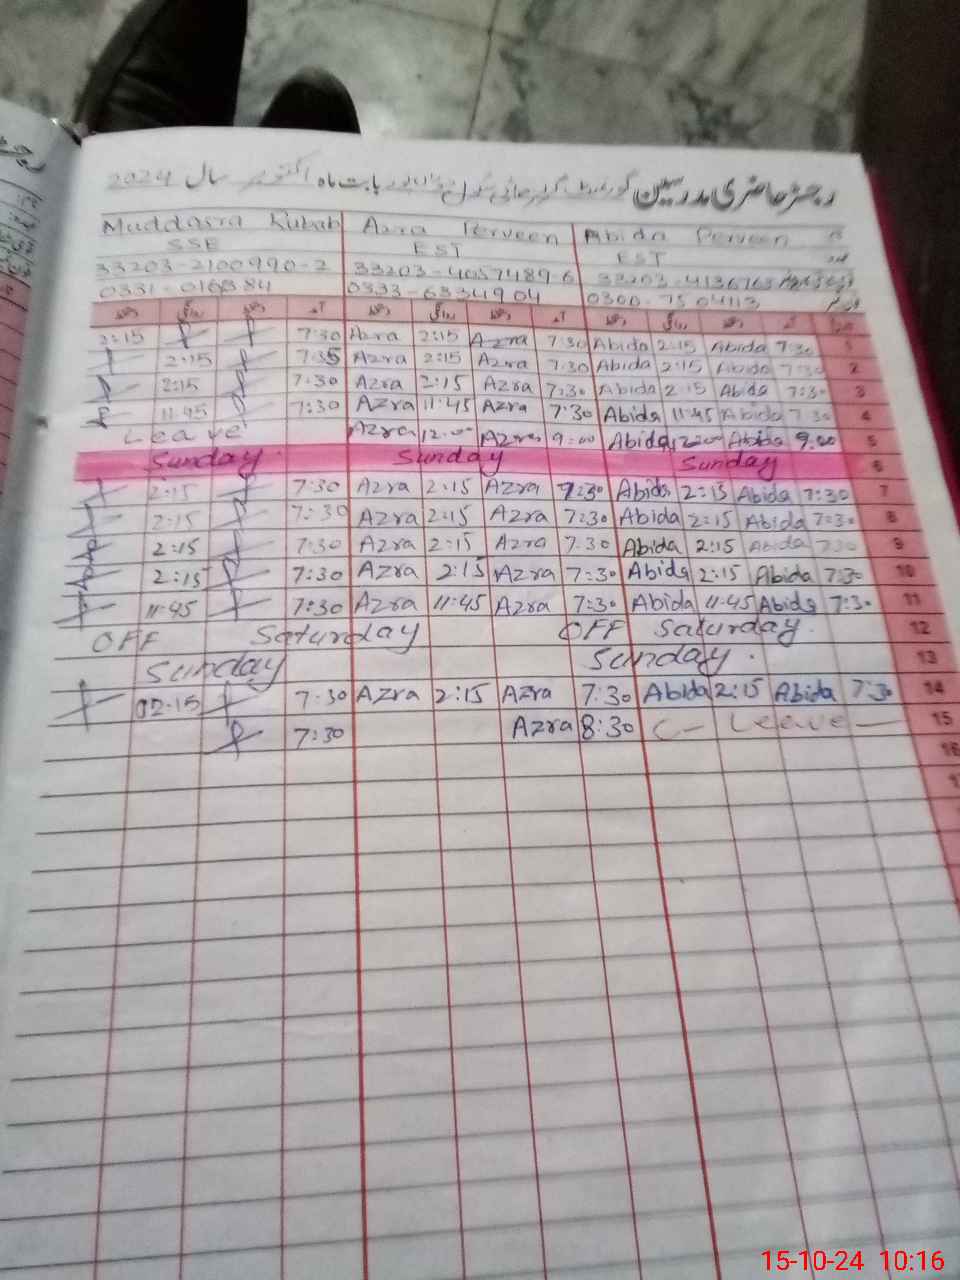 رجسٹر حاضری مدرسین گورنمنٹ بابت ماہ اکتوبر سال 2024
Muddasra Rubab Azra Perveen Abida Perveen
SSE EST EST
33203-2100990-2 33203-4057489-6
0331- 0333-6334904 0300-7504113
دستخط روانگی دستخط آمد دستخط روانگی دستخط آمد دستخط روانگی دستخط آمد
2:15 7:30 Azra 2:15 Azra 7:30 Abida 2:15 Abida 7:30 1
2:15 7:35 Azra 2:15 Azra 7:30 Abida 2:15 Abida 7:30 2
2:15 7:30 Azra 2:15 Azra 7:30 Abida 2:15 Abida 7:30 3
11:45 7:30 Azra 11:45 Azra 7:30 Abida 11:45 Abida 7:30 4
Leave Azra 12:00 Azra 9:00 Abida 12:00 Abida 9:00 5
Sunday Sunday Sunday 6
2:15 7:30 Azra 2:15 Azra 7:30 Abida 2:15 Abida 7:30 7
2:15 7:30 Azra 2:15 Azra 7:30 Abida 2:15 Abida 7:30 8
2:15 7:30 Azra 2:15 Azra 7:30 Abida 2:15 Abida 7:30 9
2:15 7:30 Azra 2:15 Azra 7:30 Abida 2:15 Abida 7:30 10
11:45 7:30 Azra 11:45 Azra 7:30 Abida 11:45 Abida 7:30 11
OFF Saturday OFF Saturday. 12
Sunday Sunday. 13
02:15 7:30 Azra 2:15 Azra 7:30 Abida 2:15 Abida 7:30 14
7:30 Azra 8:30 Leave 15
16
15-10-24 10:16